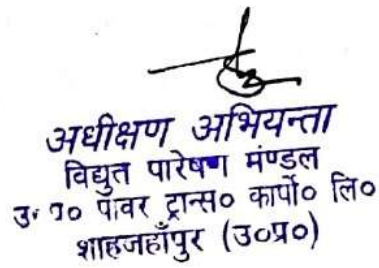 अधीक्षण अभियन्ता
विद्युत पारेषण मण्डल
उ० प्र० पावर ट्रान्स० कार्पो० लि०
शाहजहाँपुर (उ०प्र०)